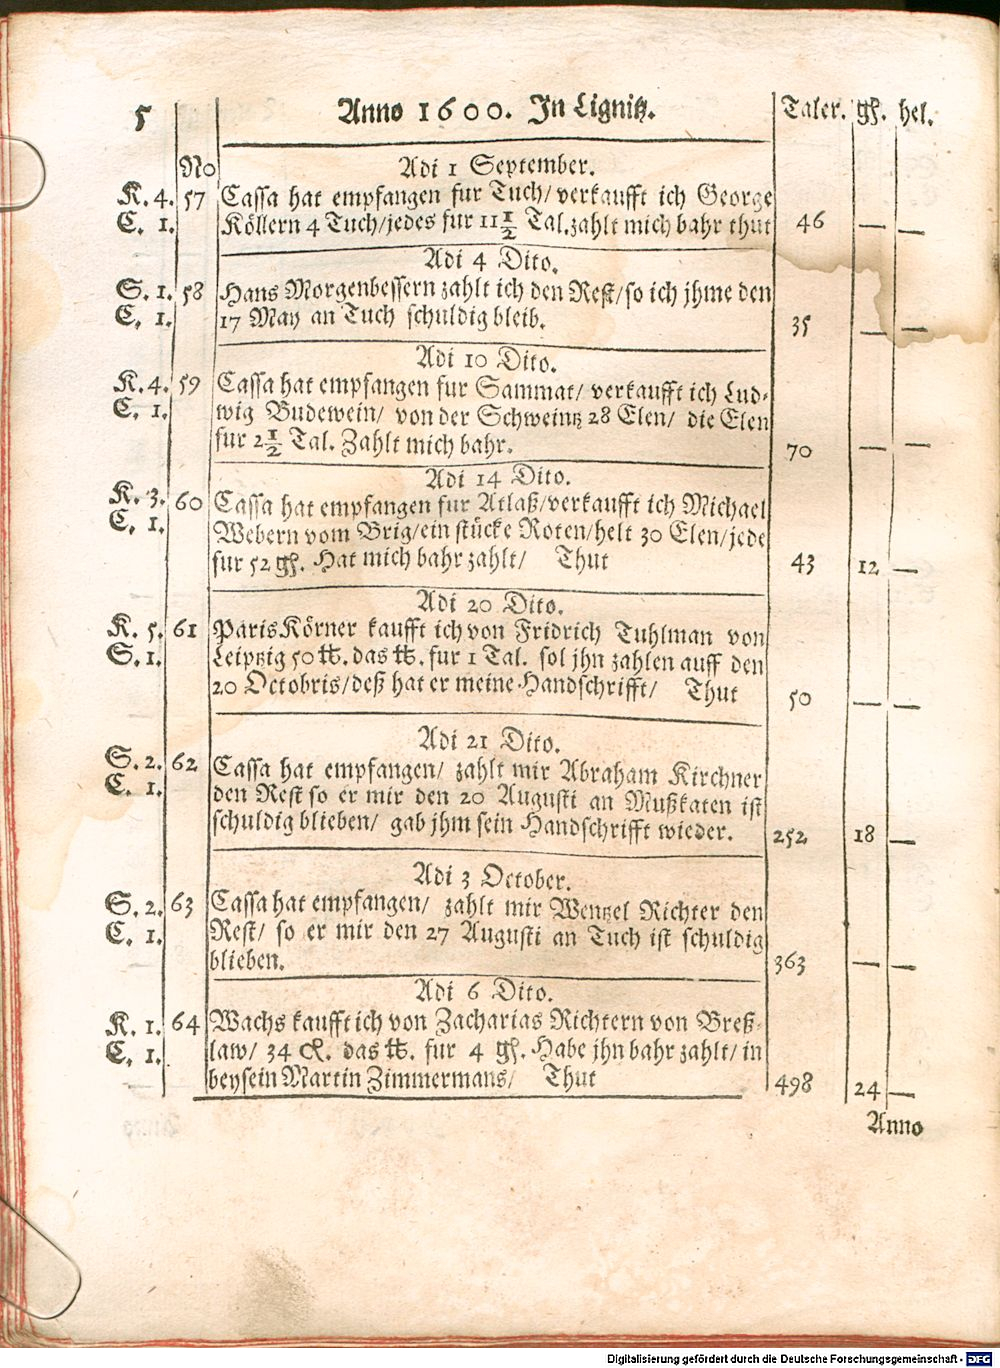 5 Anno 1600. In Lignitz. Taler. gſ. hel.
No Adi 1 September.
K. 4. 57 Caſſa hat empfangen fur Tuch/verkaufft ich George
C. 1. Köllern 4 Tuch/jedes fur 11 1/2 Tal.zahlt mich bahr thut 46 — —
Adi 4 Dito.
S. 1. 58 Hans Morgenbeſſern zahlt ich den Reſt/ſo ich jhme den
C. 1. 17 May an Tuch ſchuldig bleib. 35 — —
Adi 10 Dito.
K. 4. 59 Caſſa hat empfangen fur Sammat/ verkaufft ich Lud-
C. 1. wig Budewein/ von der Schweintz 28 Elen/ die Elen
fur 2 1/2 Tal. Zahlt mich bahr. 70 — —
Adi 14 Dito.
K. 3. 60 Caſſa hat empfangen fur Atlaß/verkaufft ich Michael
C. 1. Webern vom Brig/ein ſtücke Roten/helt 30 Elen/jede
fur 52 gſ. Hat mich bahr zahlt/ Thut 43 12 —
Adi 20 Dito.
K. 5. 61 Paris Körner kaufft ich von Fridrich Tuhlman von
S. 1. Leiptzig 50 ℔. das ℔. fur 1 Tal. ſol jhn zahlen auff den
20 Octobris/deß hat er meine Handſchrifft/ Thut 50 — —
Adi 21 Dito.
S. 2. 62 Caſſa hat empfangen/ zahlt mir Abraham Kirchner
C. 1. den Reſt ſo er mir den 20 Auguſti an Mußkaten iſt
ſchuldig blieben/ gab jhm ſein Handſchrifft wieder. 252 18 —
Adi 3 October.
S. 2. 63 Caſſa hat empfangen/ zahlt mir Wentzel Richter den
C. 1. Reſt/ ſo er mir den 27 Auguſti an Tuch iſt ſchuldig
blieben. 363 — —
Adi 6 Dito.
K. 1. 64 Wachs kaufft ich von Zacharias Richtern von Breß-
C. 1. law/ 34 das ℔. fur 4 gſ. Habe jhn bahr zahlt/ in
beyſein Martin Zimmermans/ Thut 498 24 —
Anno
Digitalisierung gefördert durch die Deutsche Forschungsgemeinschaft - DFG